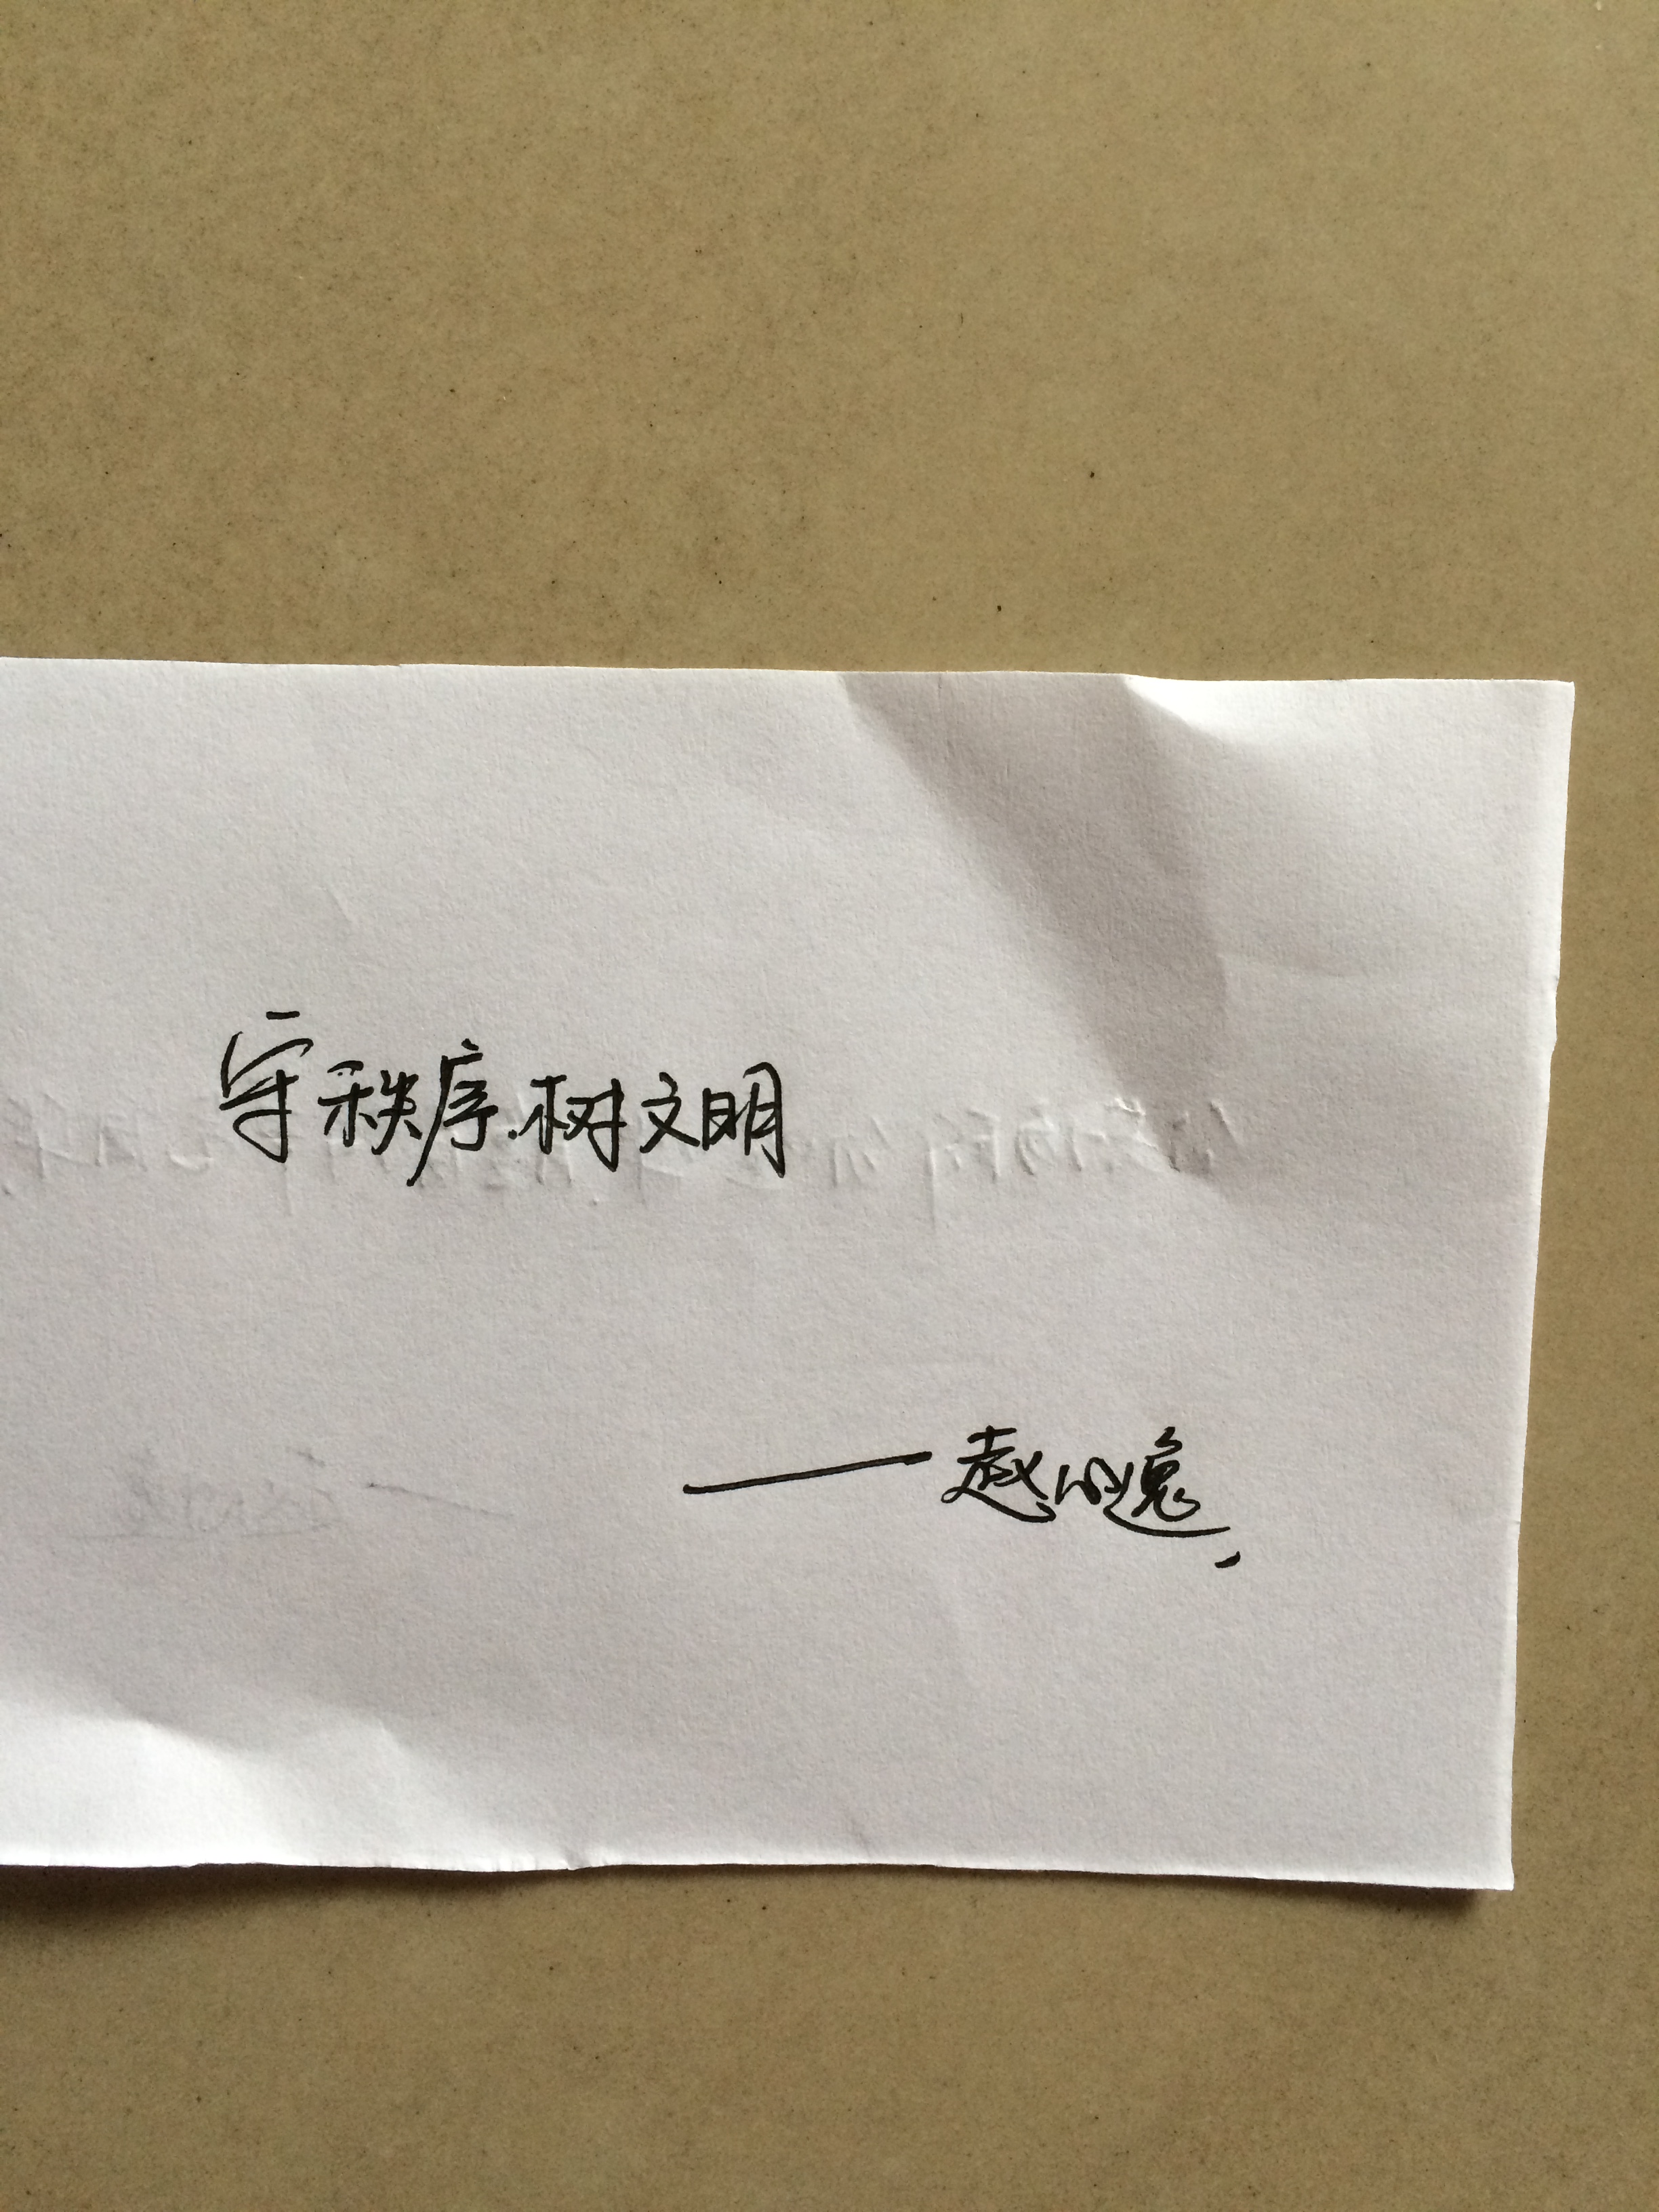 守秩序.树文明
——赵 逸